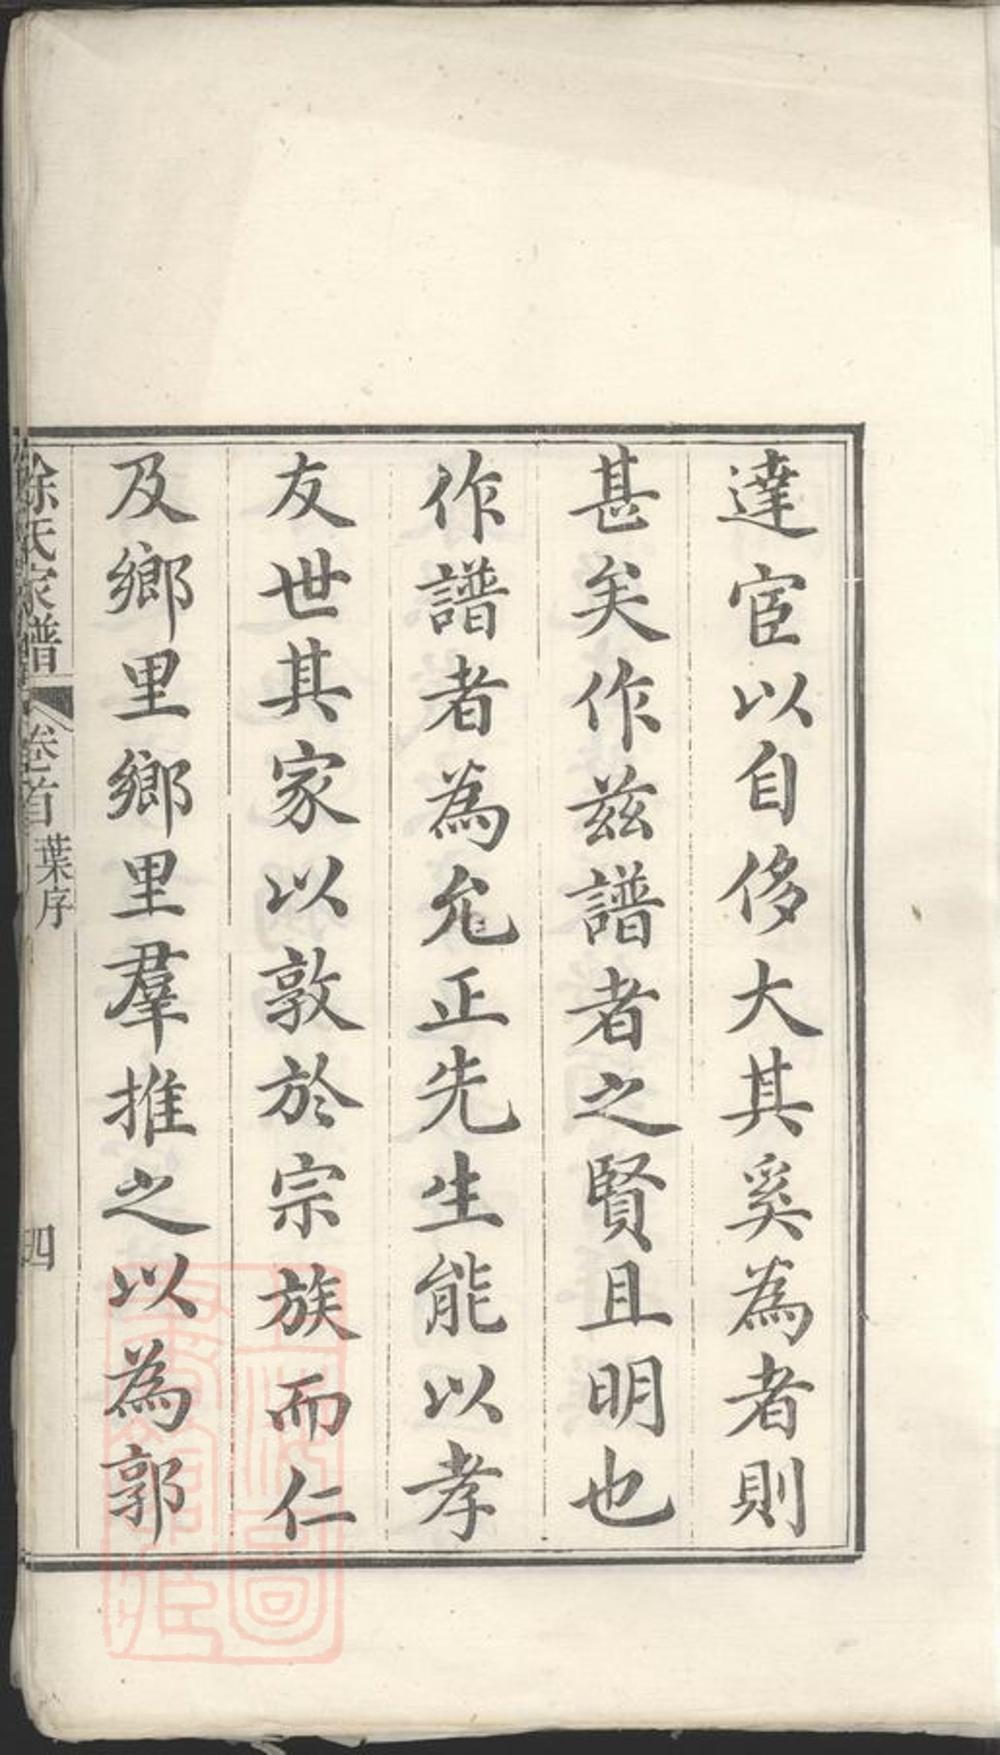 達宦以自侈大其奚為者則
甚矣作兹譜者之賢且明也
作譜者為允正先生能以孝
友世其家以敦於宗族而仁
及鄉里鄉里羣推之以為郭
徐氏家譜
卷首
葉序
四